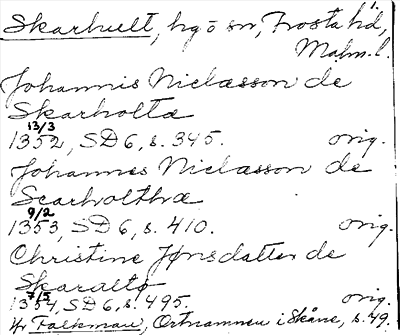 Skarhult, hg o sn, Frosta hd,
Malm. l.
Johannis Niclæsson de
Skarholta
13/3
1352, SD 6, s. 345. orig.
Johannes Niclæsson de
Scarholthæ
9/2
1353, SD 6, s. 410. orig.
Christine Jønsdatter de
Skaraltø
7/5
1354, SD 6, s. 495. orig.
Jfr Falkman, Ortnamnen i Skåne, s. 49.